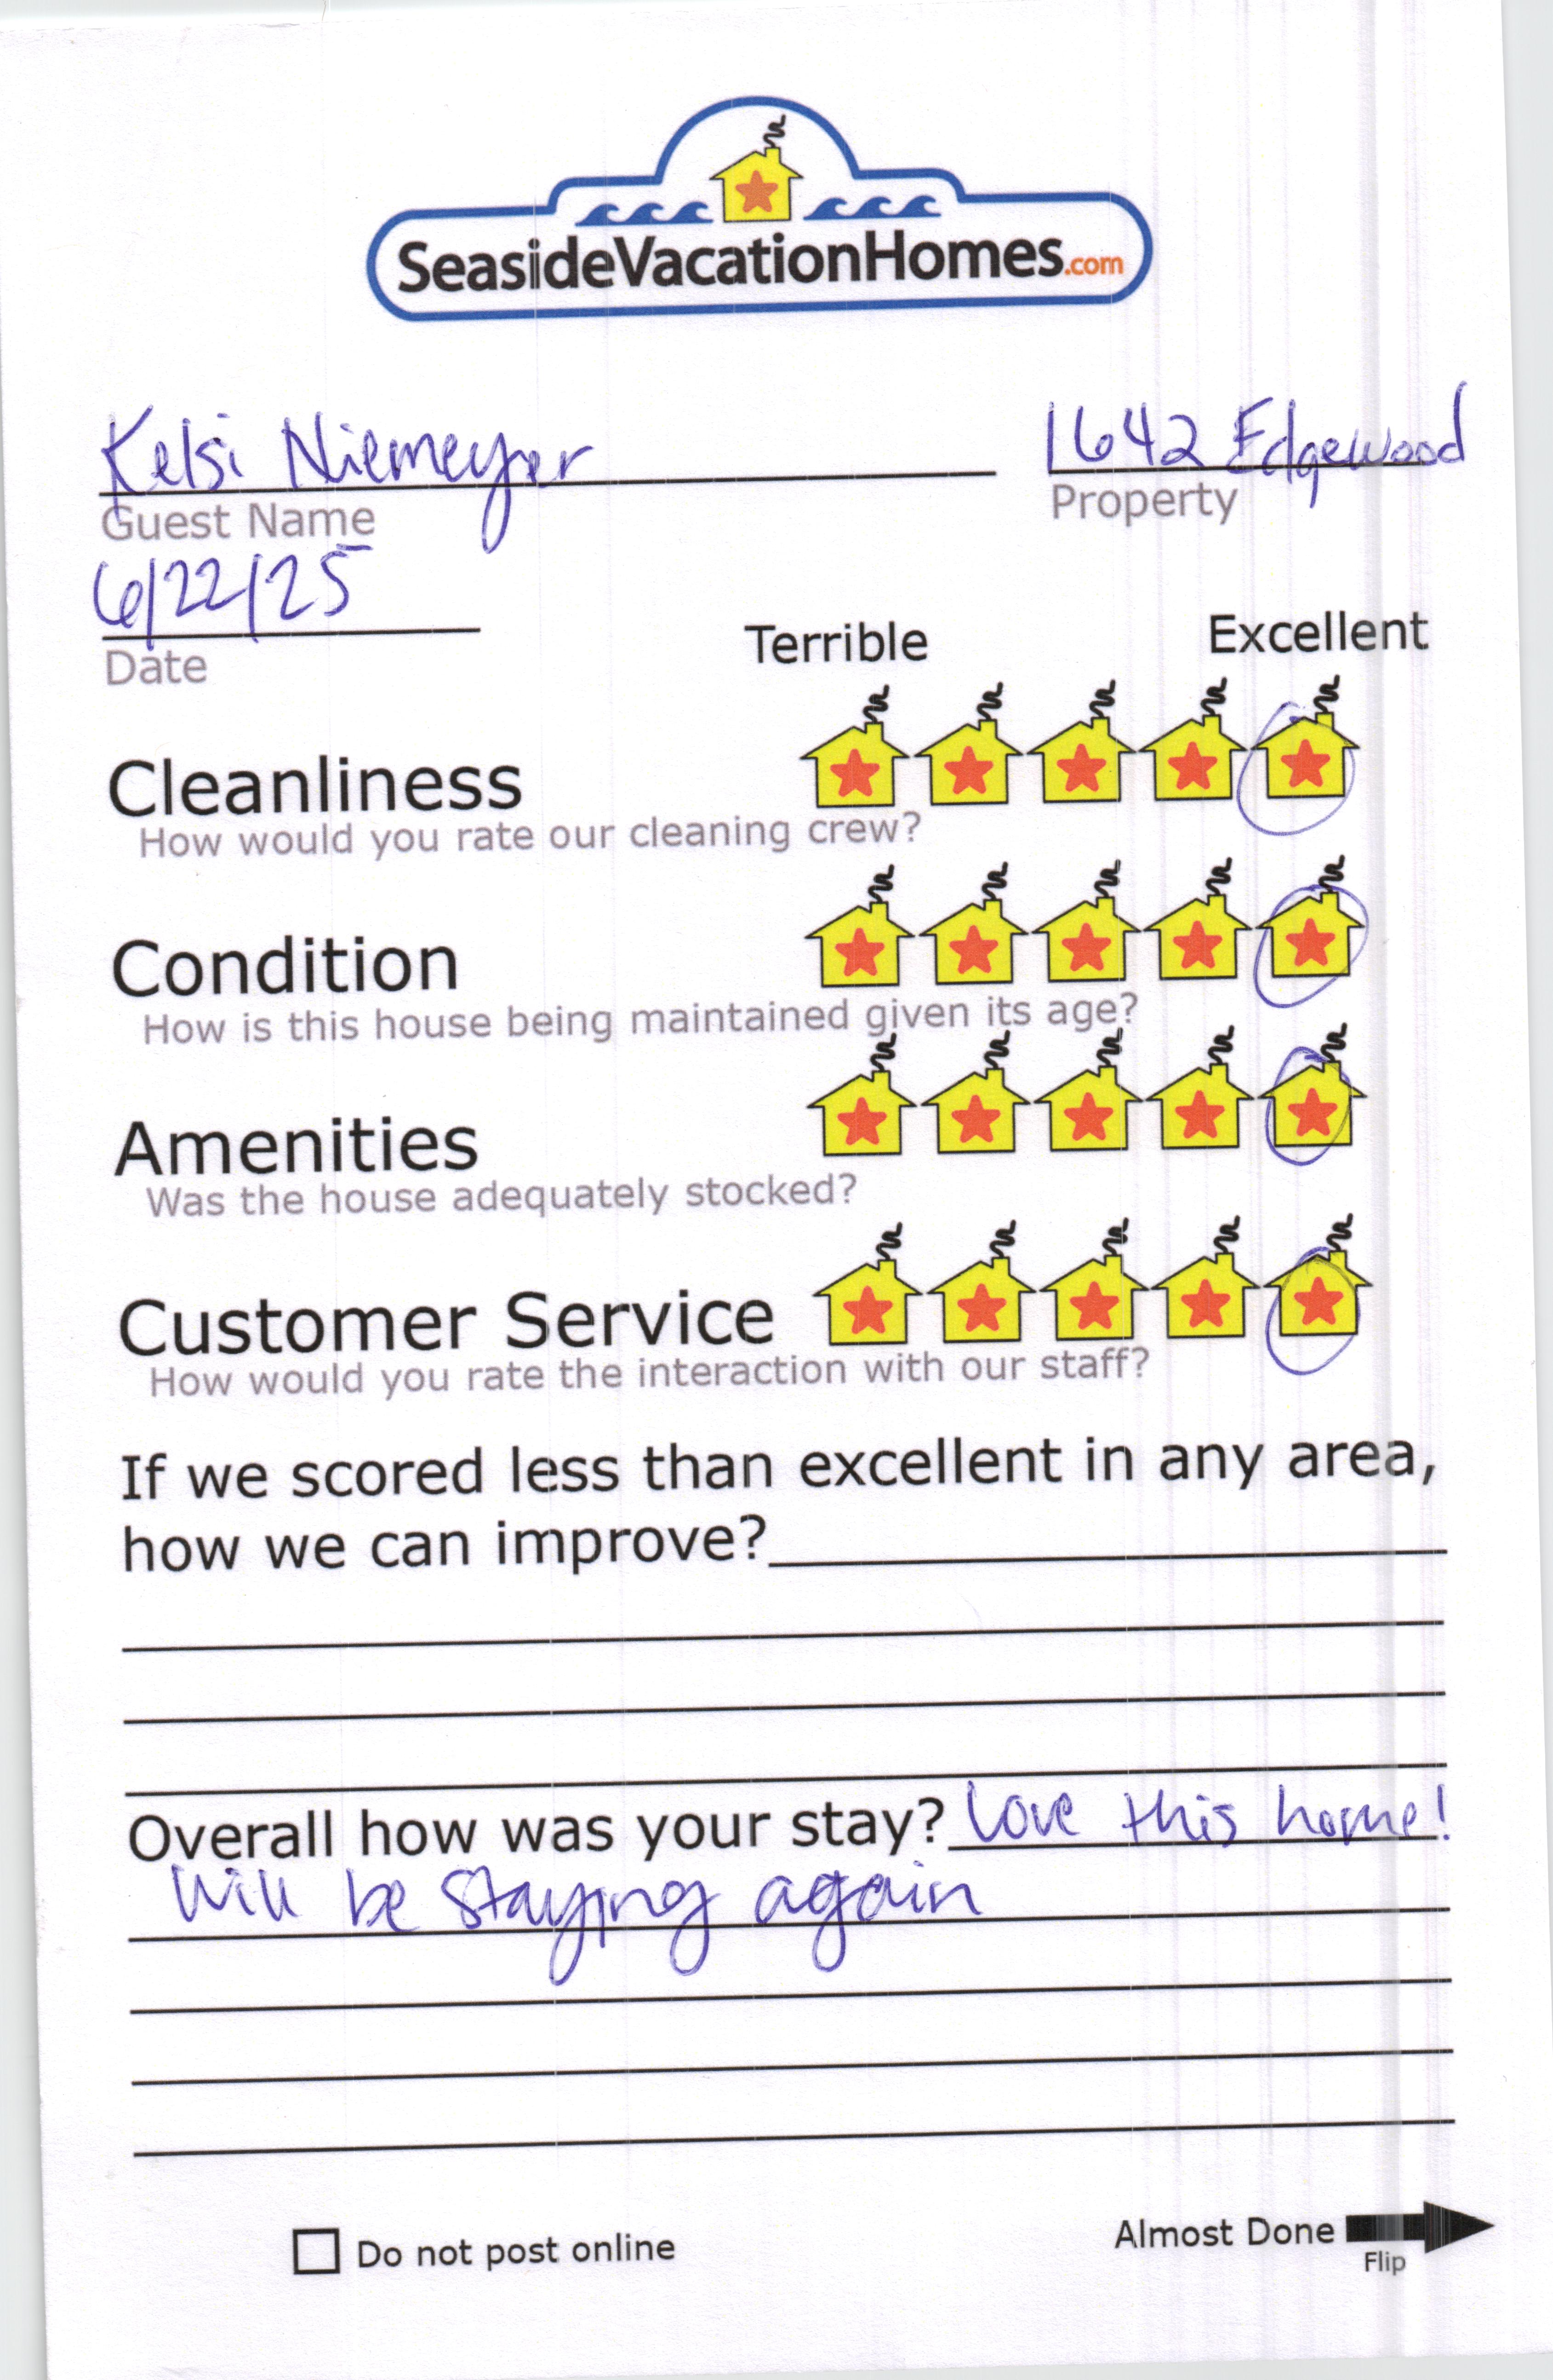 SeasideVacationHomes.com
Kelsi Niemeyer 1642 Edgewood
Guest Name Property
6/22/25
Date
Terrible Excellent
Cleanliness
How would you rate our cleaning crew?
Condition
How is this house being maintained given its age?
Amenities
Was the house adequately stocked?
Customer Service
How would you rate the interaction with our staff?
If we scored less than excellent in any area,
how we can improve?
Overall how was your stay? Love this home!
Will be staying again
Do not post online Almost Done
Flip